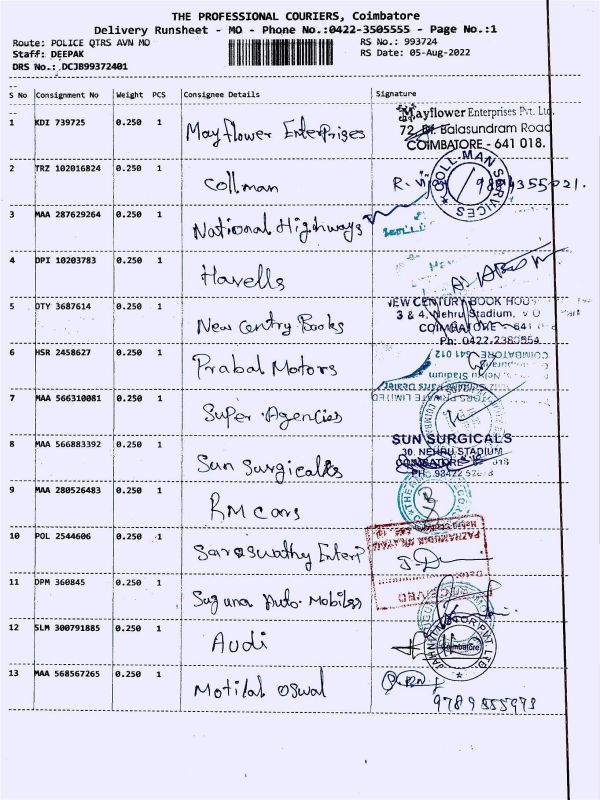 THE PROFESSIONAL COURIERS, Coimbatore
Delivery Runsheet - MO - Phone No.:0422-3505555 - Page No.:1
Route: POLICE QTRS AVN MO RS No.: 993724
Staff: DEEPAK RS Date: 05-Aug-2022
DRS No.: DCJB99372401
S No Consignment No Weight PCS Consignee Details Signature
1 KDI 739725 0.250 1 Mayflower Enterprises
Mayflower Enterprises Pvt. Ltd.
72, Balasundram Road
COIMBATORE - 641 018.
2 TRZ 102016824 0.250 1 Collman
COLL MAN SERVICES
3 MAA 287629264 0.250 1 National Highways
4 DPI 10203783 0.250 1 Havells
5 OTY 3687614 0.250 1 New Centry Books
NEW CENTURY BOOK HOUS
3 & 4, Nehru Stadium,
COIMBATORE - 641 0
Ph: 0422-2380554
6 HSR 2458627 0.250 1 Prabal Motors
COIMBATORE 641 012
Nehru Stadium
7 MAA 566310081 0.250 1 Super Agencies
8 MAA 566883392 0.250 1 Sun Surgicals
SUN SURGICALS
30, NEHRU STADIUM
COIMBATORE 018
9 MAA 280526483 0.250 1 RM cars
10 POL 2544606 0.250 1 Saraswathy Enterp
RECEIVED
11 DPM 360845 0.250 1 Suguna Auto Mobiles
12 SLM 300791885 0.250 1 Audi
Coimbatore
13 MAA 568567265 0.250 1 Motilal Oswal
9789555973